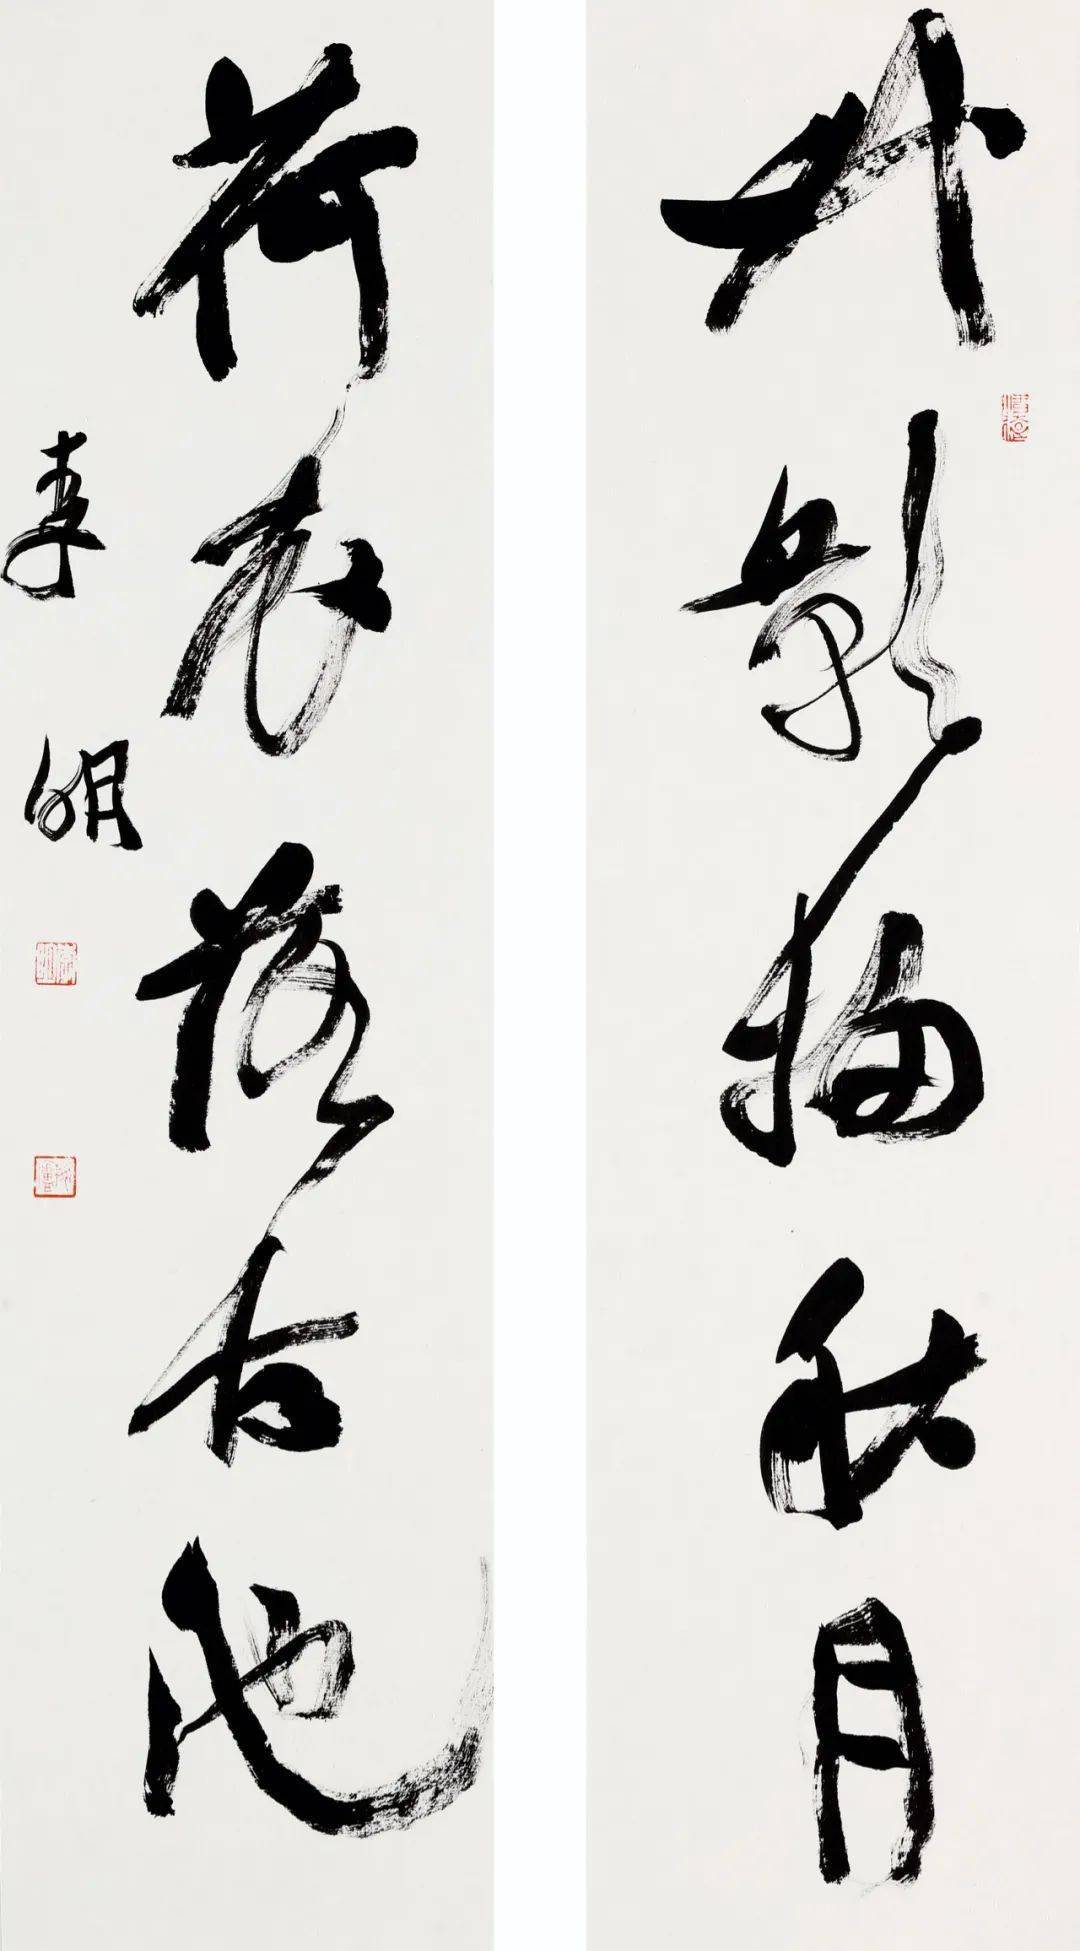 竹影掃秋月
荷衣落古池
李明